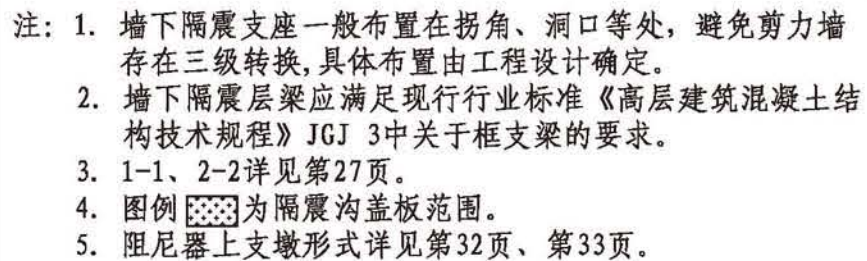 注：1. 墙下隔震支座一般布置在拐角、洞口等处，避免剪力墙
存在三级转换，具体布置由工程设计确定。
2. 墙下隔震层梁应满足现行行业标准《高层建筑混凝土结
构技术规程》JGJ 3中关于框支梁的要求。
3. 1-1、2-2详见第27页。
4. 图例 为隔震沟盖板范围。
5. 阻尼器上支墩形式详见第32页、第33页。